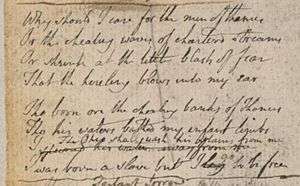 Why should I care for the men of thames
Or the cheating waves of charterd streams
Or shrink at the little blasts of fear
That the hireling blows into my ear

Tho born on the cheating banks of Thames
Tho his waters bathed my infant limbs
The Ohio shall wash his stains from me
I was born a slave but I go to be free